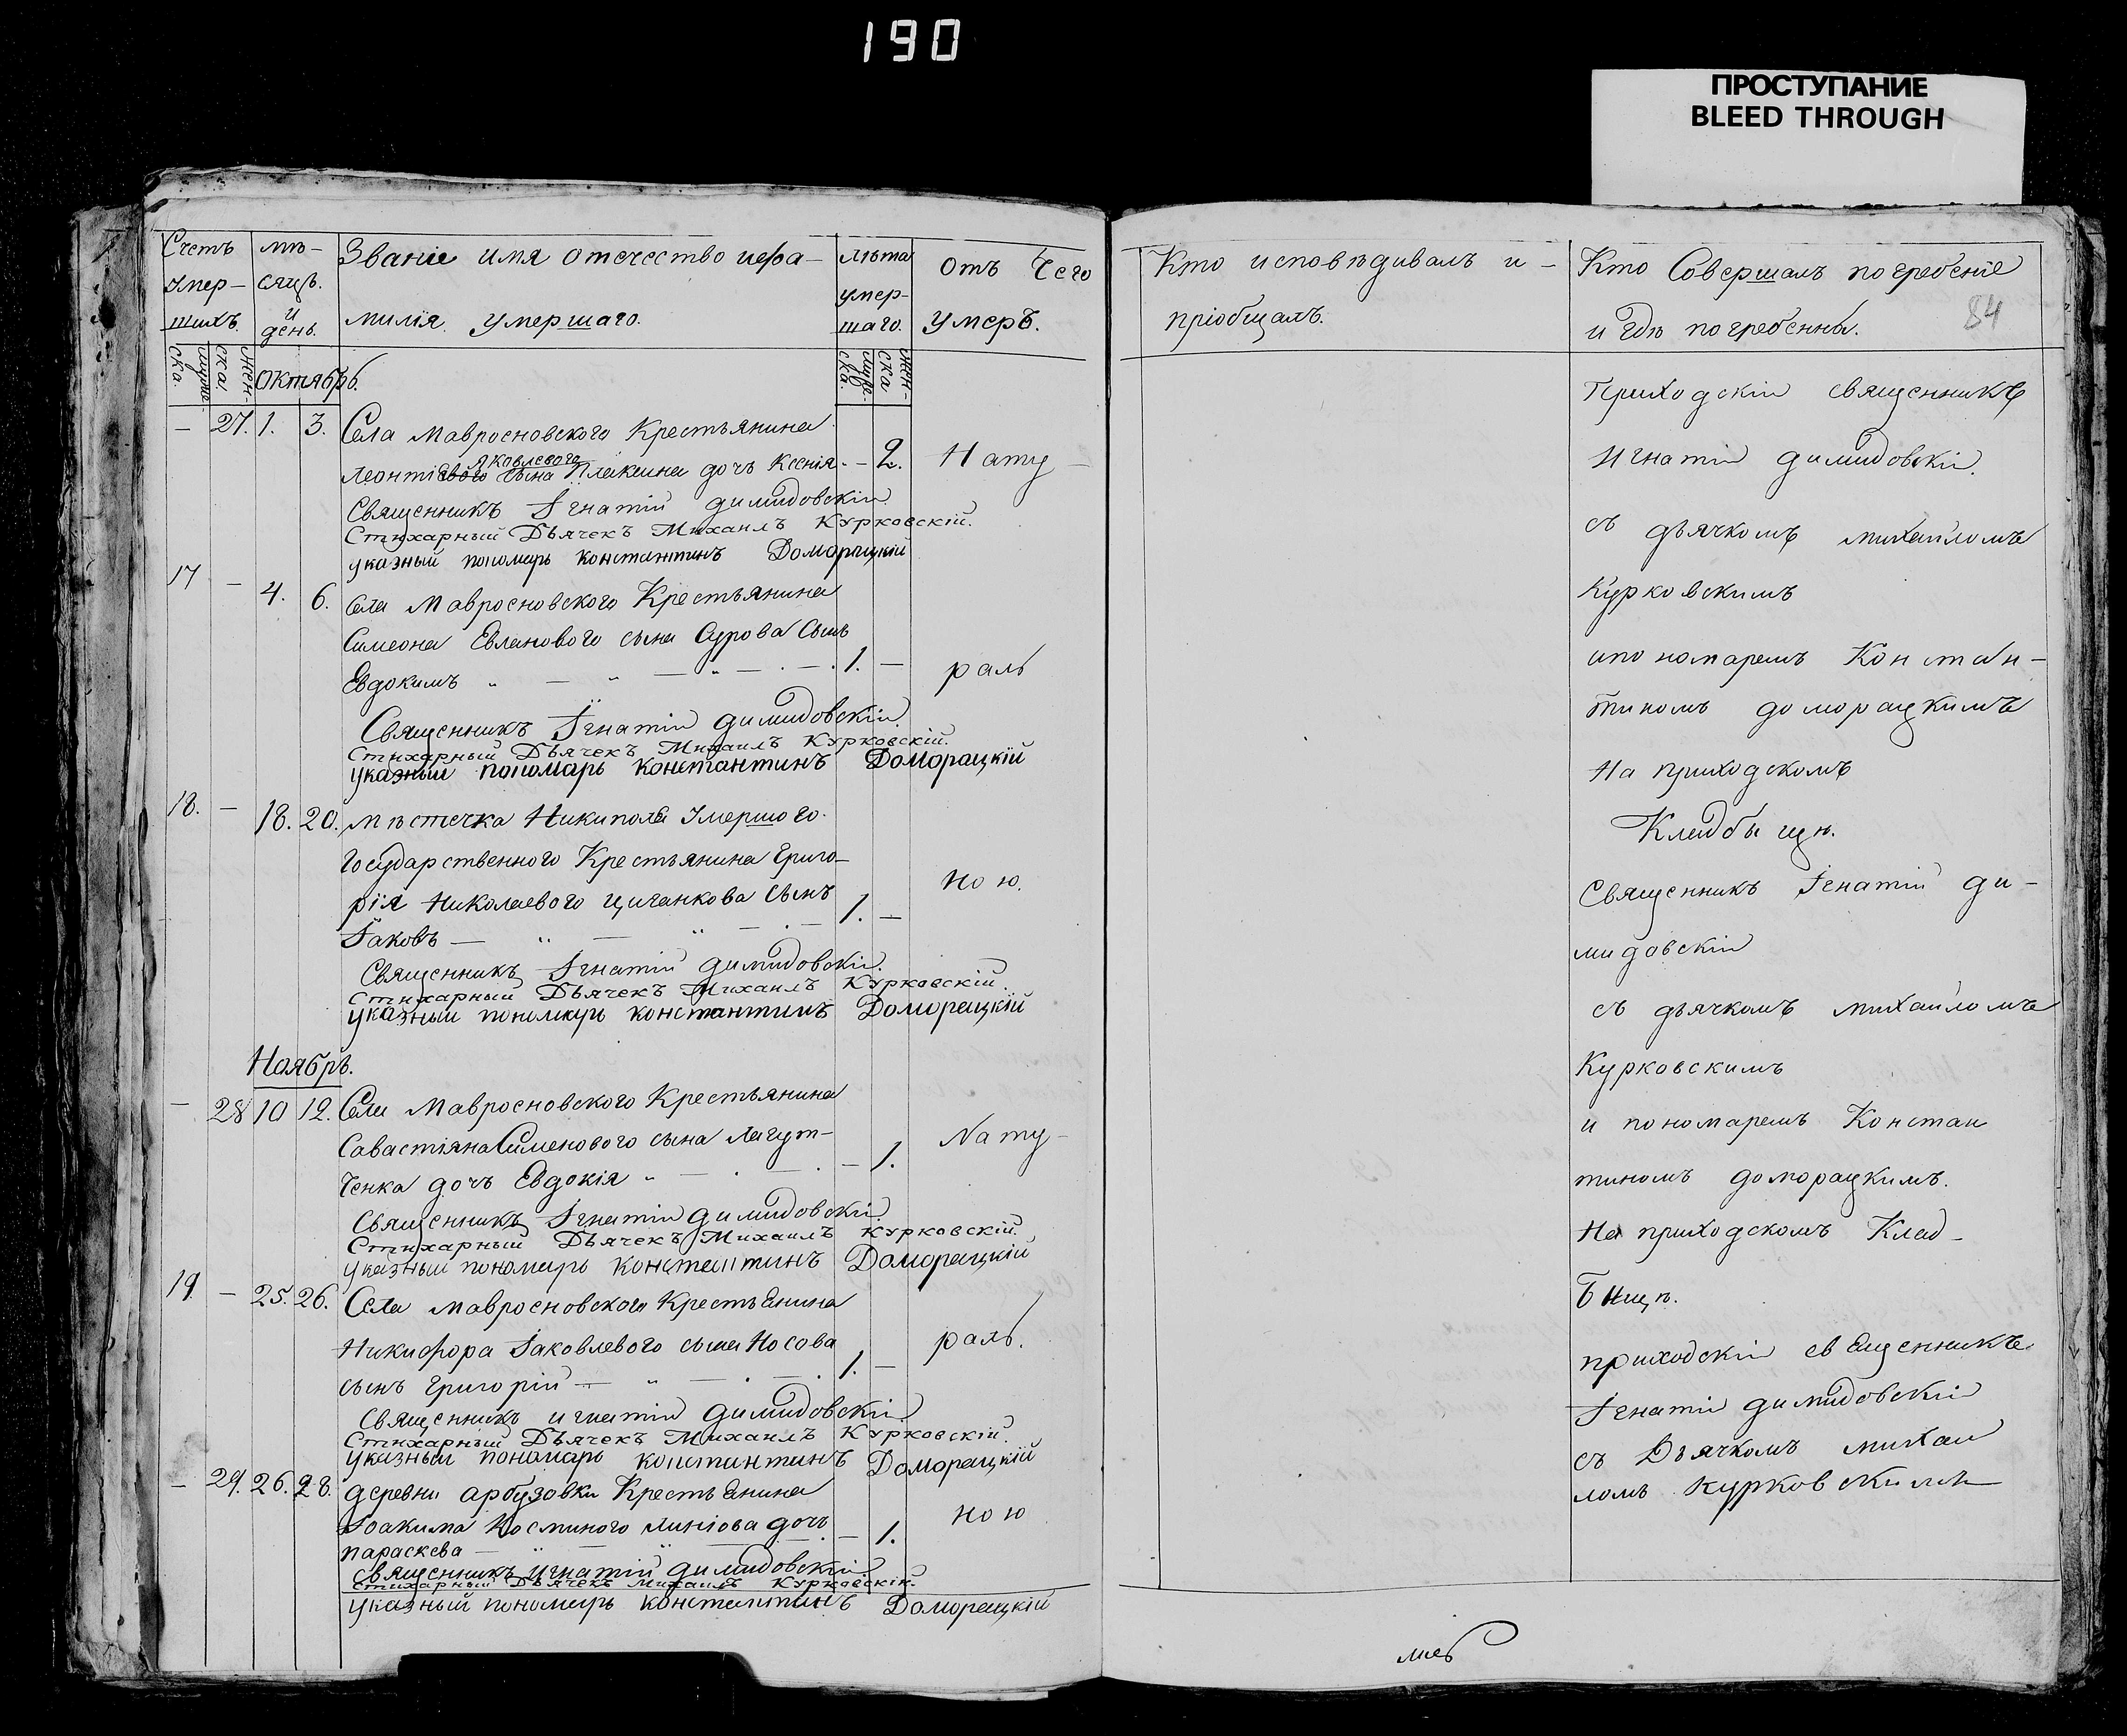 190
ПРОСТУПАНИЕ
BLEED THROUGH
Счетъ умер-шихъ.
мѣ-сяцъ. и день.
Званіе имя отечество ифа-
милія умершаго.
лѣта умер-шаго.
отъ Чего
умеръ.
муже-ска. женска.
октябрь.
муже-ска. женска.
— 27. 1. 3. Села Мавросновского Крестьянина
яковлевого
Леонтіевого сына Плаксина дочь Ксенія. - — 2. Нату —
Священникъ Ігнатій димидовскій
Стихарный Дьячекъ Михаилъ Курковскій.
указный пономарь константинъ Доморацкій
17 — 4. 6. Села Мавросновского Крестьянина
Симеона Евланового сына Сурова Сынъ
Евдокимъ 1. — раль
Священникъ Ігнатій димидовскій.
Стихарный Дьячекъ Михаилъ Курковскій.
указный пономарь константинъ Доморацкій
18. — 18. 20. мѣстечка Никиполя Умершого
Государственного Крестьянина Григо-
рія Николаевого Циганкова Сынъ ною.
Іаковъ 1. —
Священникъ Ігнатій димидовскій.
Стихарный Дьячекъ Михаилъ Курковскій.
указный пономарь константинъ Доморацкій
Ноябрь.
— 28 10 12. Села Мавросновского Крестьянина
Савастіяна Сименового сына Лагут- Nату —
Ченка дочь Евдокія — 1.
Священникъ Ігнатій димидовскій
Стихарный Дьячекъ Михаилъ Курковскій.
указный пономарь константинъ Доморацкій
19. — 25. 26. Села мавросновского Крестьянина
Никифора Іаковлевого сына Носова раль.
сынъ Григорій 1. —
Священникъ игнатій димидовскій
Стихарный Дьячекъ Михаилъ Курковскій.
указный пономарь константинъ Доморацкій
— 29. 26. 28. деревни арбузовки Крестьянина
Іоакима Косминого дочь — 1. ною
параскева
священникъ игнатій димидовскій
стихарный Дьячекъ Михаилъ Курковскій.
указный пономарь константинъ Доморацкій
Кто исповѣдивалъ и-
пріобщалъ.
Кто Совершалъ погребеніе
и гдѣ погребенны.
84
Приходскій священникъ
Игнатій димидовскій.
съ дьячкомъ михайломъ
Курковскимъ
ипономаремъ Констан-
тиномъ доморацкимъ
На приходскомъ
Кладбыщѣ.
Священникъ Ігнатій ди-
мидовскій
съ дьячкомъ михаиломъ
Курковскимъ
и пономаремъ Констан
тиномъ доморацкимъ.
На приходскомъ Клад-
Бищѣ.
приходскій священникъ
Ігнатій димидовскій
съ Дьячкомъ михаи
ломъ Курковскимъ